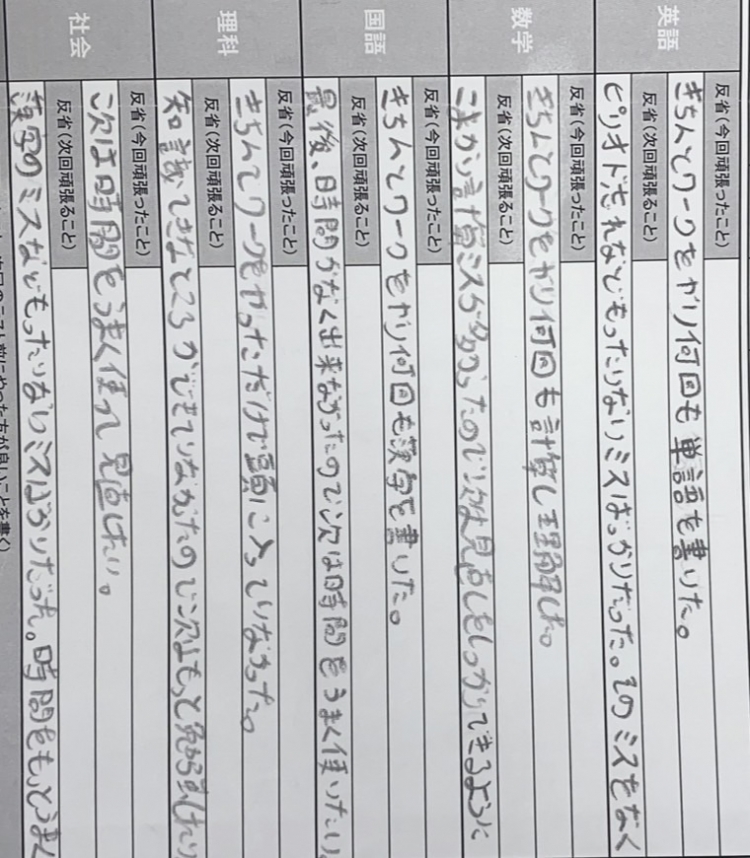 英語
反省(今回頑張ったこと)
きちんとワークをやり何回も単語を書いた。
反省(次回頑張ること)
ピリオド忘れなどもったいないミスばっかりだった。そのミスをなく
数学
反省(今回頑張ったこと)
きちんとワークをやり何回も計算し理解した。
反省(次回頑張ること)
こまかい計算ミスが多かったので次は見直しをしっかりできるように
国語
反省(今回頑張ったこと)
きちんとワークをやり何回も漢字を書いた。
反省(次回頑張ること)
最後、時間がなく出来なかったので次は時間をうまく使いたい。
理科
反省(今回頑張ったこと)
きちんてワークをやっただけで頭に入っていなかった。
反省(次回頑張ること)
知識てきなところができていなかったので次はもっと勉強したい
社会
反省(今回頑張ったこと)
次は時間をうまく使って見直したい。
反省(次回頑張ること)
漢字のミスなどもったいないミスばかりだった。時間をもっとうまく